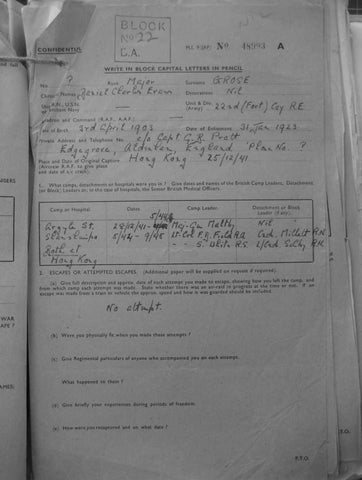 BLOCK
No 22
L.A.
CONFIDENTIAL
M.I. 9/JAP/ No 48993 A
WRITE IN BLOCK CAPITAL LETTERS IN PENCIL
No. ? Rank Major Surname GROSE
Christian Names Daniel Charles Evan Decorations Nil
Ship (R.N., U.S.N. or Merchant Navy) Unit & Div. (Army) 22nd (Fort) Coy RE
Squadron and Command (R.A.F., A.A.F.)
Date of Birth 3rd April 1903 Date of Enlistment 31 Jan 1923
Private Address and Telephone No. c/o Capt G.R. Pratt
Edgegrove, Aldenham, England Phone No. ?
Place and Date of Original Capture Hong Kong 25/12/41
(Aircrew R.A.F. to give place and date of a/c crash).
1. What camps, detachments or hospitals were you in? Give dates and names of the British Camp Leaders, Detachment
(or Block) Leaders or, in the case of hospitals, the Senior British Medical Officers.
Camp or Hospital. Dates. Camp Leader. Detachment or Block Leader (if any).
Argyle St. 28/12/41 - 5/44 Maj-Gen Maltby Nil
Shamshuipo 5/44 - 9/45 Lt-Col Field RA Cmd. RN
Both at White RS Lt/Cmd. RN
Hong Kong
2. ESCAPES OR ATTEMPTED ESCAPES. (Additional paper will be supplied on request if required).
(a) Give full description and approx. date of each attempt you made to escape, showing how you left the camp, and
from which camp each attempt was made. State whether there was an air-raid in progress at the time or not. If
escape was made from a train for vehicle the approx. speed and how it was guarded should be included.
No attempt.
(b) Were you physically fit when you made these attempts?
(c) Give Regimental particulars of anyone who accompanied you on each attempt.
What happened to them?
(d) Give briefly your experiences during periods of freedom.
(e) How were you recaptured and on what date?
P.T.O.
P.T.O.